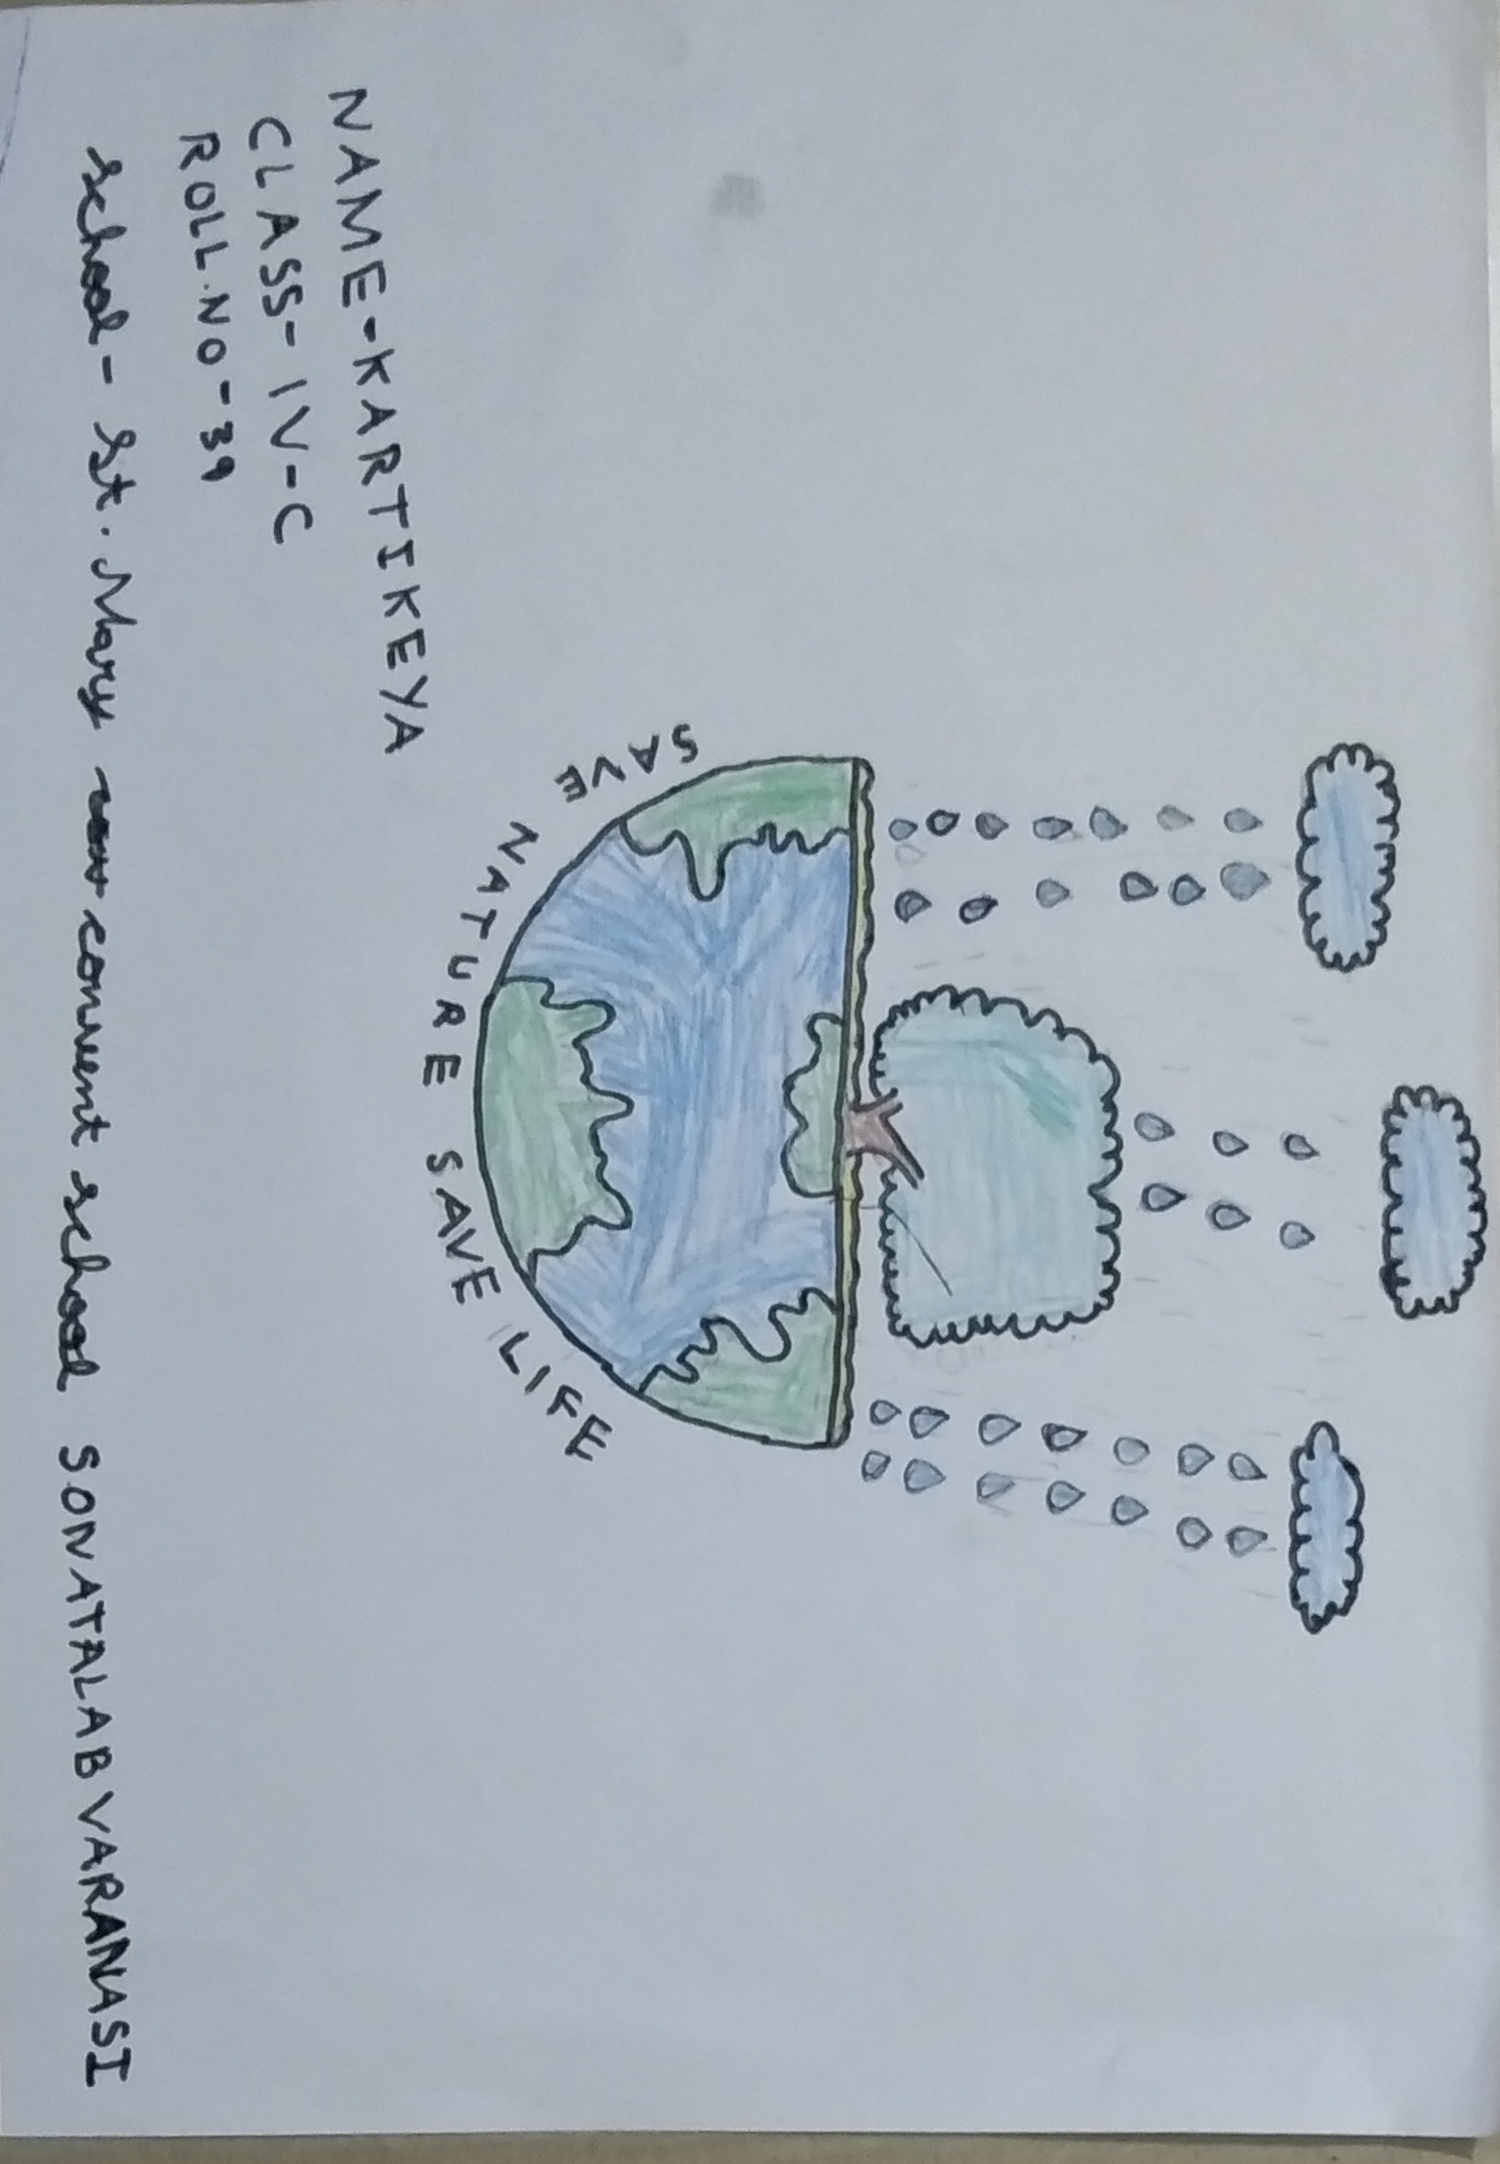 SAVE NATURE SAVE LIFE
NAME-KARTIKEYA
CLASS-IV-C
ROLL.NO-39
School- St. Mary convent school SONATALAB VARANASI